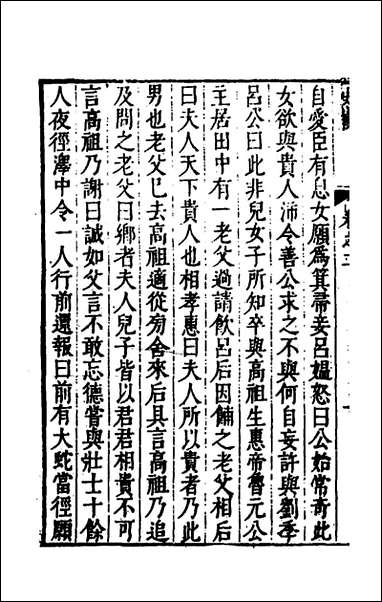 自愛臣有息女願爲箕帚妾呂媼怒曰公始常奇此
女欲與貴人沛令善公求之不與何自妄許與劉季
呂公曰此非兒女子所知卒與高祖生惠帝魯元公
主居田中有一老父過請飲呂后因餔之老父相后
曰夫人天下貴人也相孝惠曰夫人所以貴者乃此
男也老父已去高祖適從旁舍來后具言高祖乃追
及問之老父曰鄉者夫人兒子皆以君君相貴不可
言高祖乃謝曰誠如父言不敢忘德嘗與壯士十餘
人夜徑澤中令一人行前還報曰前有大蛇當徑願